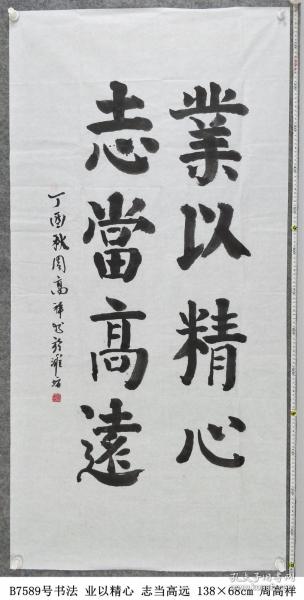 業以精心
志當高遠
丁酉秋周高祥書於濰坊
B7589号书法 业以精心 志当高远 138×68cm 周高祥